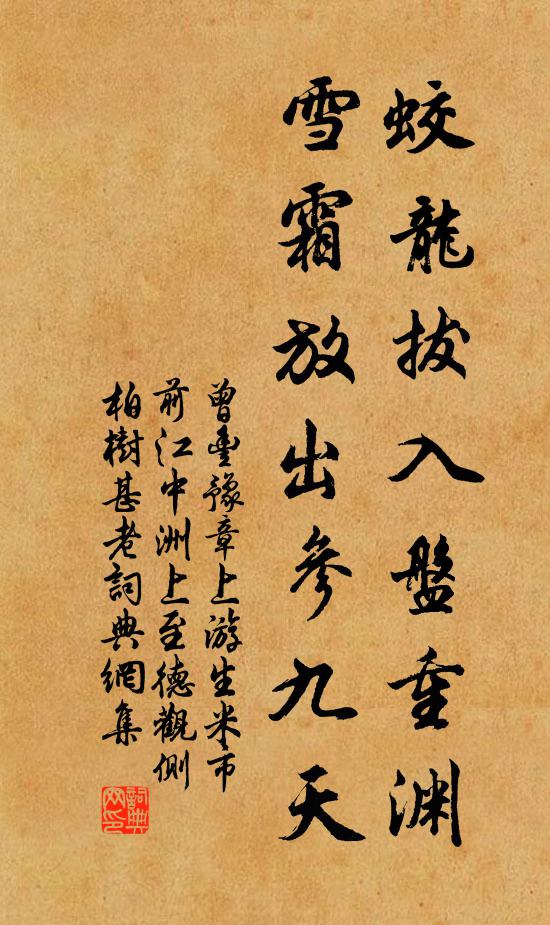 蛟龍拔入盤重渊
雪霜放出參九天
曾豊豫章上游生米市
前江中洲上至德觀側
柏樹甚老詞典網集
詞典
网印